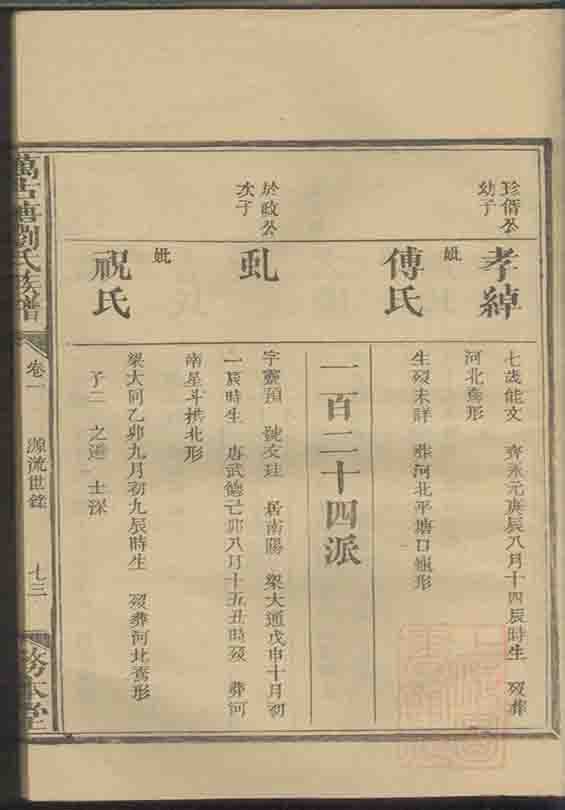 珍偕公
幼子
孝綽
七歲能文 齊永元庚辰八月十四辰時生 歿葬
河北鸞形
妣
傅氏
生歿未詳 葬河北平塘口龜形
一百二十四派
於政公
次子
虬
字靈預 號文珪 居南陽 梁大通戊申十月初
一辰時生 唐武德己卯八月十五丑時歿 葬河
南星斗拱北形
妣
祝氏
梁大同乙卯九月初九辰時生 歿葬河北鸞形
子二 之遴 士深
萬古塘劉氏族譜
卷一
源流世錄
七三
務本堂